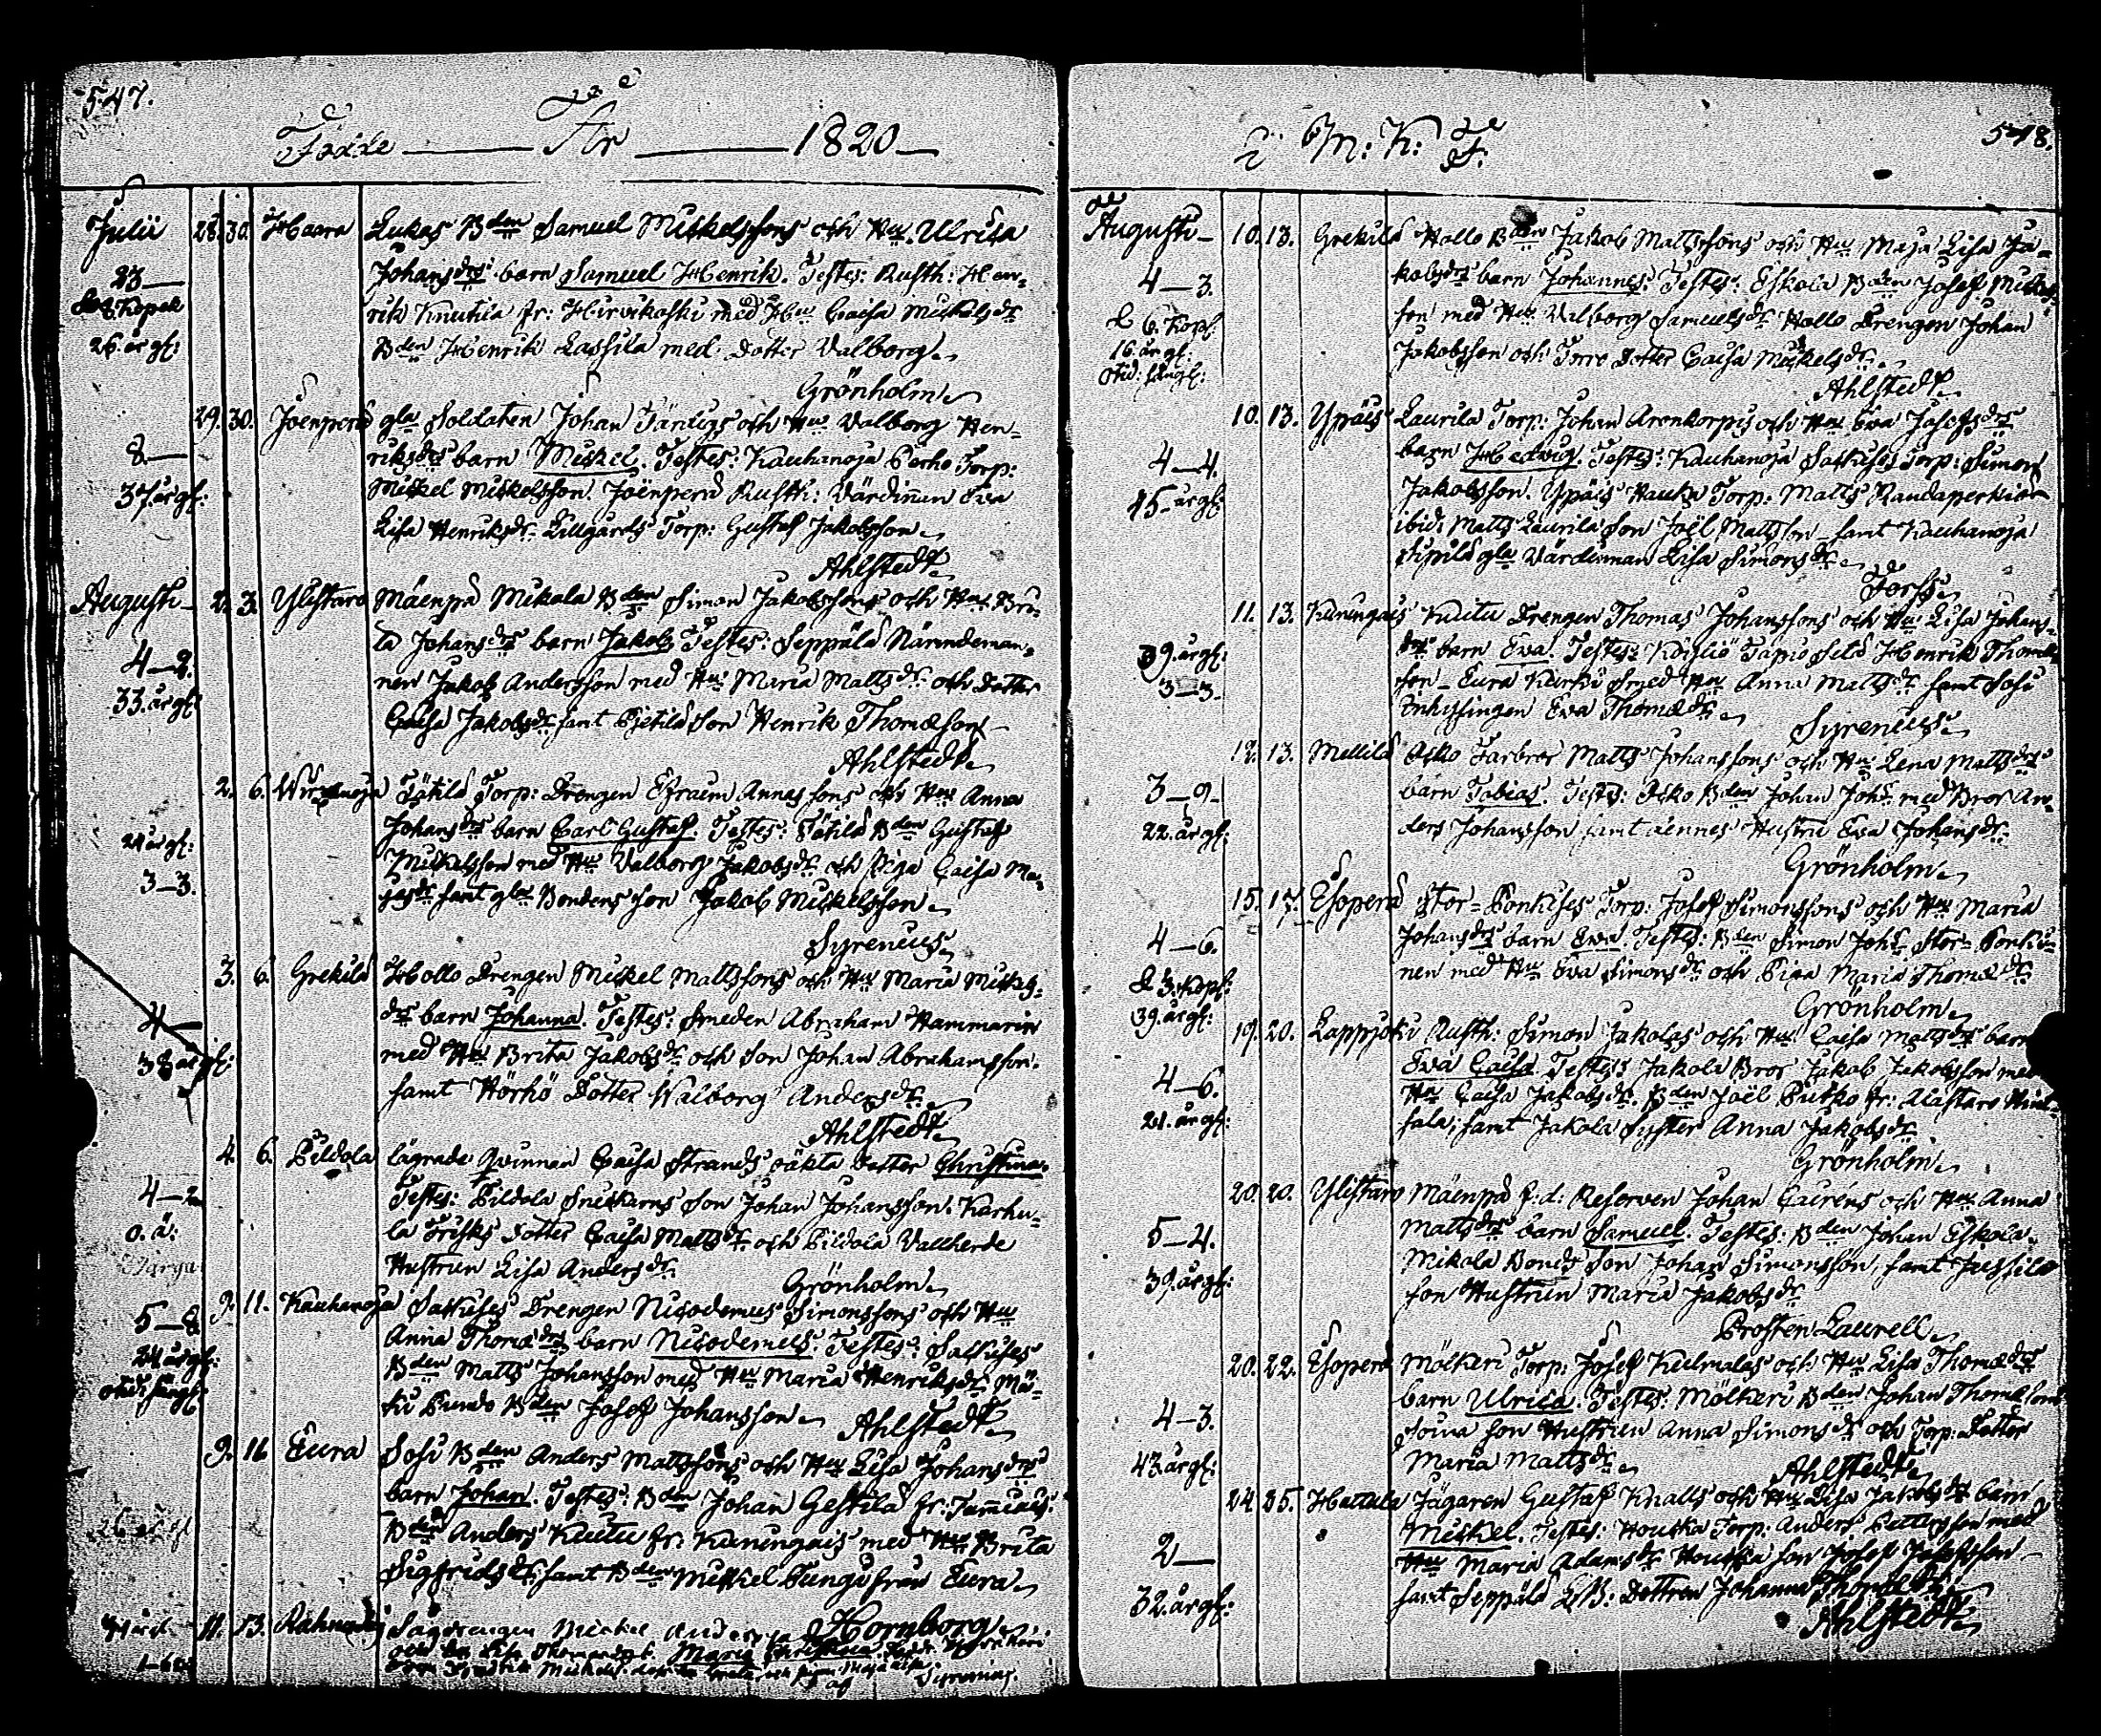 547.
Födde — År — 1820 —
Julii 28. 30. Haara Lukas Bden Samuel Mickelssons och Hu. Ulrica
23 — Johansdrs barn Samuel Henrik. Testes: Rusth: Hen-
Kopek rik Knutila fr: Hirvikoski med Hu Caisa Mickelsdr
26. år gl: Bden Henrik Lassila med Dotter Valborg.
Grönholm
29. 30. Joenperä gla Soldaten Johan Färdigs och Hu Valborg Hen-
8 — riksdrs barn Mickel. Testes: Kauhanoja Perho Torp:
37. år gl: Mickel Mickelsson. Joenperä Rusth: Värdinnan Eva
Lisa Henriksdr Lillgårds Torp: Gustaf Jakobsson
Ahlstedt
Augusti 2. 3. Ylistaro Mäenpä Mikola Bden Simon Jakobssons och Hu Bri-
ta Johansdrs barn Jakob Testes: Seppälä Närindeman-
4 — 2. nen Jakob Andersson med Hu Maria Mattsdr och dotter
33. år gl: Caisa Jakobsdr samt Pietilä Son Henrik Thomæson
Ahlstedt
2. 6. Virvanoja Tätilä Torp: Drengen Efraim Annæ sons och Hu Anna
Johansdrs barn Carl Gustaf. Testes: Tätilä Bden Gustaf
24 år gl: Mickelsson med Hu Valborg Jakobsdr och Piga Caisa Ma-
3 — 3. samt gla Bondens son Jakob Mickelsson
Syrenius
3. 6. Grekilä Hollo Drengen Mickel Mattssons och Hu Maria Mickels-
4 — drs barn Johanna. Testes: Smeden Abraham Hammarin
38 år gl: med Hu Brita Jakobsdr och Son Johan Abrahamsson
samt Hörhö Dotter Walborg Andersdr
Ahlstedt
4. 6. Pildola lägrade Qvinnan Caisa Strands oäkta dotter Christina.
4 — 2 Testes: Pildola Snickarns Son Johan Johansson. Karhu-
o. ä: la Frisks Dotter Caisa Mattsdr och Pildola Vallherde
Hustrun Lisa Andersdr
Grönholm
9. 11. Kauhanoja Satkuses Drengen Nicodemus Simonssons och Hu
5 — 8 Anna Thomædrs barn Nicodemus. Testes: Satkuses
24 år gl: Bden Matts Johansson med Hu Maria Henriksdr Mä-
otid: sängl: ki Pundo Bden Josef Johansson
Ahlstedt
9. 16 Eura Sosi Bden Anders Mattssons och Hu Lisa Johansdrs
barn Johan. Testes: Bden Johan Gestilä fr: Tamiais.
Bden Anders Kuutu fr: Kuningais med Hu Brita
Sigfridsdr. samt Bden Mickel Pungi från Eura
Hornborg
11. 13. Sågdrengen Mickel
Maria Christina
Syrenius.
i M: K: F. 548.
Augusti — 10. 13. Grekilä Hollo Bden Jakob Mattssons och Hu Maja Lisa Ja-
4 — 3. kobsdrs barn Johannes. Testes: Eskola Bden Josef Mickels-
& 6. Kop: son med Hu Valborg Samuelsdr Hollo Drengen Johan
16. år gl: Jakobsson och Torro Dotter Caisa Mickelsdr
otid: sängl: Ahlstedt
10. 13. Ypäis Laurila Torp: Johan Aronkorpis och Hu Eva Josefsdrs
4 — 4. barn Hedwig. Testes: Kauhanoja Satkuses Torp: Simon
45. år gl: Jakobsson. Ypäis Hauka Torp: Matts Randaperkiö
ibid: Matts Laurila Son Joël Mattsson samt Kauhanoja
Sipilä gla Värdinnan Lisa Simonsdr
Forss
11. 13. Kuningais Kuutu Drengen Thomas Johanssons och Hu Lisa Johans-
39. år gl: drs barn Eva. Testes: Kjuliö Tapio Seld Henrik Thomæ
3 — 3. son — Eura Kurki Smed Hu Anna Mattsdr samt Sosi
Enhysingen Eva Thomædr
Syrenius
12. 13. Mellilä Asko Farbror Matts Johanssons och Hu Lena Mattsdrs
3 — 9. barn Tobias. Testes: Asko Bden Johan Johs. med Bror An-
22. år gl: ders Johansson samt dennes Hustru Eva Johansdr
Grönholm
15. 17. Esoperä Stor-Ponkises Torp: Josef Simonssons och Hu Maria
4 — 6. Johansdrs barn Ewa. Testes: Bden Simon Johs. Stor-Ponki-
& 3. Kop: nen med Hu Eva Simonsdr och Piga Maria Thomædr
39. år gl: Grönholm
19. 20. Lappijoki Rusth: Simon Jakolas och Hu Caisa Mattsdrs barn
4 — 6. Eva Caisa Testes: Jakola Bror Jakob Jakobsson med
21. år gl: Hu Caisa Jakobsdr. Bden Joël Putko fr: Alastaro
samt Jakola Syster Anna Jakobsdr
Grönholm
20. 20. Ylistaro Mäenpä f: d: Reserven Johan Cairéns och Hu Anna
5 — 4. Mattsdrs barn Samuel. Testes: Bden Johan Eskola.
39. år gl: Mikola Bonds Son Johan Simonsson, samt Jussila
son Hustrun Maria Jakobsdr
Prosten Laurell
20. 22. Esoperä Mölkeri Torp: Josef Kulmalas och Hu Lisa Thomædrs
4 — 3. barn Ulrica. Testes: Mölkeri Bden Johan Thomæson
43. år gl: son Hustrun Anna Simonsdr och Torp: Dotter
Maria Mattsdr
Ahlstedt
24. 25. Hattula Jägaren Gustaf Knalls och Hu Lisa Jakobsdrs barn
2 — Mickel. Testes: Houska Torp: Anders Pettersson med
32. år gl: Hu Maria Adamsdr Houska son Josef Josefsson
samt Seppälä Dottren Johanna Thomædr
Ahlstedt